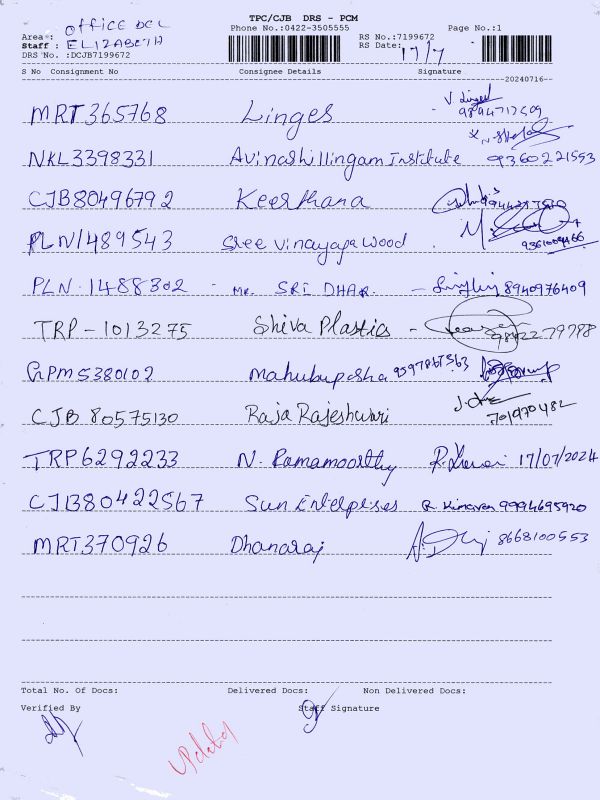 TPC/CJB DRS - PCM
Phone No.:0422-3505555 Page No.:1
Area : OFFICE DEL
Staff : ELIZABETH
DRS No. :DCJB7199672
RS No.:7199672
RS Date: 17/7
S No Consignment No Consignee Details Signature
20240716
MRT365768 Linges V. Linges 9894717409
NKL3398331 Avinashillingam Institute 9360221553
CJB80496792 Keerthana
PLN1489543 Sree Vinayaga wood
PLN.1488302 - MR. SRI DHAR. - 8940976409
TRP-1013275 Shiva Plastics - 9842279788
GPM5380102 Mahubupasha 9597867563
CJB 80575130 Raja Rajeshwari 701970482
TRP6292233 N. Ramamoorthy 17/07/2024
CJB80422567 Sun Enterprises 9994695920
MRT370926 Dhanaraj 8668100553
Total No. Of Docs: Delivered Docs: Non Delivered Docs:
Verified By Staff Signature
updated